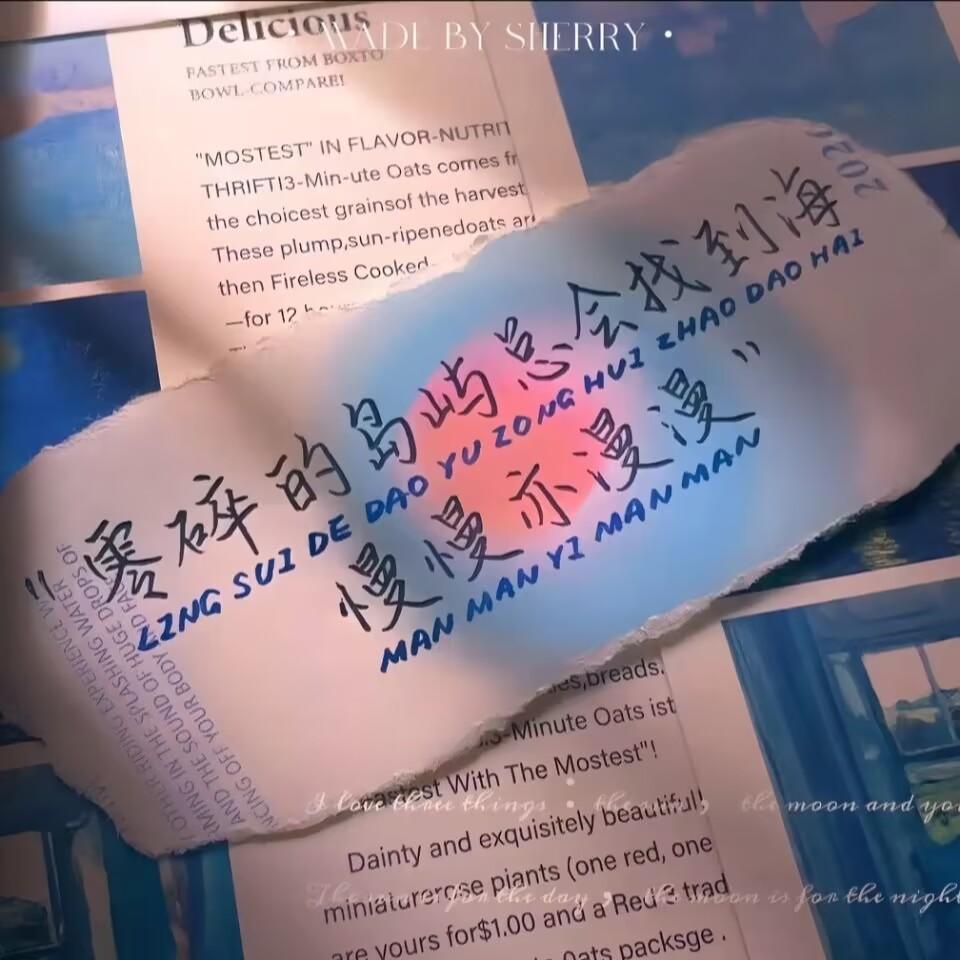 Delicious
MADE BY SHERRY •
FASTEST FROM BOXTO
BOWL-COMPARE!
"MOSTEST" IN FLAVOR-NUTRIT
THRIFTI3-Min-ute Oats comes fr
the choicest grainsof the harvest
These plump,sun-ripenedoats ar
then Fireless Cooked
—for 12
202
"零碎的岛屿总会找到海
LING SUI DE DAO YU ZONG HUI ZHAO DAO HAI
慢慢亦漫漫"
MAN MAN YI MAN MAN
OTHER RIDING EXPERIENCE W
RMING IN THE SPLASHING WATER
AND THE SOUND OF HUGE DROPS OF
NCING OFF YOUR BODY
es,breads.
3-Minute Oats ist
astest With The Mostest"!
I love three things • the sun , the moon and you
Dainty and exquisitely beautiful!
miniaturerose piants (one red, one
The sun for the day , the moon is for the night
are yours for$1.00 and a Red 3 trad
Oats packsge .